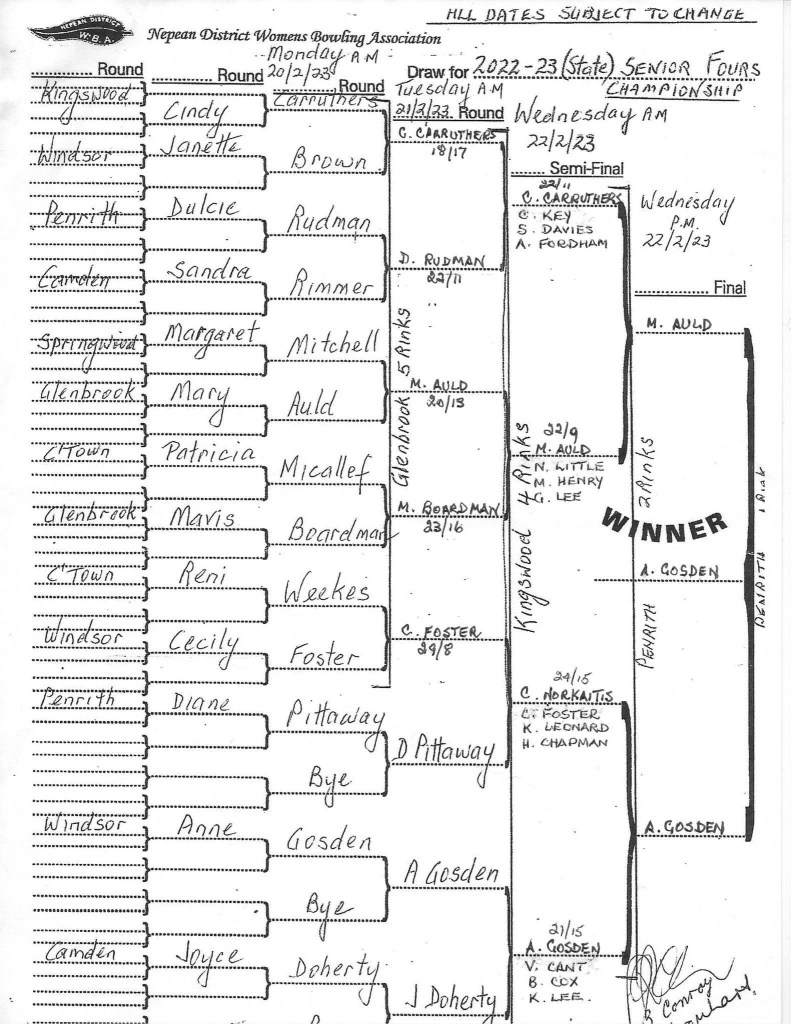 ALL DATES SUBJECT TO CHANGE
NEPEAN DISTRICT
W.B.A.
Nepean District Womens Bowling Association
Monday AM
20/2/23
Round
Round
Round
Draw for 2022-23 (State) SENIOR FOURS
CHAMPIONSHIP
Tuesday AM
21/2/23 Round
Wednesday AM
22/2/23
Semi-Final
Wednesday
P.M.
22/2/23
Final
Kingswood Cindy Carruthers
Windsor Janette Brown
Penrith Dulcie Rudman
Camden Sandra Rimmer
Springwood Margaret Mitchell
Glenbrook Mary Auld
C'Town Patricia Micallef
Glenbrook Mavis Boardman
C'Town Reni Weekes
Windsor Cecily Foster
Penrith Diane Pittaway
Bye
Windsor Anne Gosden
Bye
Camden Joyce Doherty
C. CARRUTHERS
18/17
D. RUDMAN
22/11
M. AULD
20/13
M. BOARDMAN
23/16
C. FOSTER
29/8
D Pittaway
A Gosden
J Doherty
Glenbrook 5 Rinks
22/11
C. CARRUTHERS
C. KEY
S. DAVIES
A. FORDHAM
22/9
M. AULD
N. LITTLE
M. HENRY
G. LEE
24/15
C. NORKAITIS
C. FOSTER
K. LEONARD
H. CHAPMAN
21/15
A. GOSDEN
V. CANT
B. COX
K. LEE.
Kingswood 4 Rinks
M. AULD
A. GOSDEN
PENRITH 2 Rinks
WINNER
A. GOSDEN
PENRITH 1 Rink
Conroy